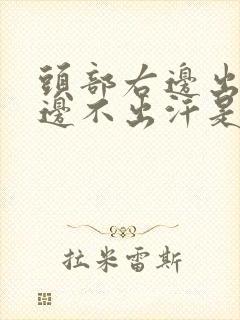 頭部右邊出
邊不出汗是
拉米雷斯